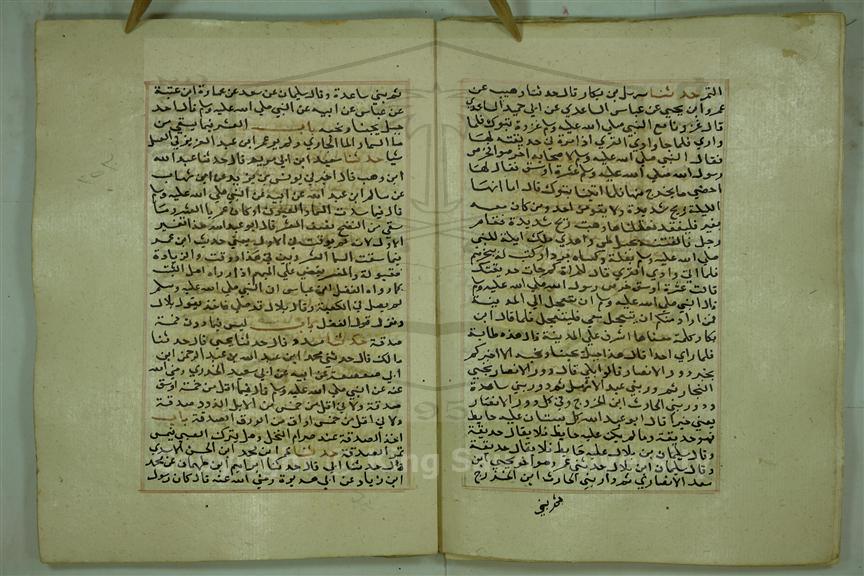 التمر حدثنا سهل بن بكار قال حدثنا وهيب عن
عمرو ابن يحيى عن عباس الساعدي عن ابي حميد الساعدي
قال غزونا مع النبي صلى الله عليه وسلم غزوة تبوك فلما
وادي القرى اذا امرة في حديقة لها
فقال النبي صلى الله عليه وسلم لاصحابه اخرصوا وخرص
رسول الله صلى الله عليه وسلم عشرة اوسق فقال لها
احصي ما يخرج منها فلما اتينا تبوك قال اما انها
الليلة ريح شديدة ولا يقومن احد ومن كان معه
بعير فليعقله فعقلناها وهبت ريح شديدة فقام
رجل فالقته بجبل طي واهدى ملك ايلة للنبي
صلى الله عليه وسلم بغلة وكساه بردا وكتب له ببحرهم
فلما اتى وادي القرى قال للمراة كم جات حديقتك
قالت عشرة اوسق خرص رسول الله صلى الله عليه وسلم
قال النبي صلى الله عليه وسلم اني متعجل الى المدينة
فمن اراد منكم ان يتعجل معي فليتعجل فلما قال ابن
بكار كلمة معناها اشرف على المدينة قال هذه طابة
فلما راى احدا قال هذا جبل يحبنا ونحبه الا اخبركم
بخير دور الانصار قالوا بلى قال دور الانصار بني
النجار ثم دور بني عبد الاشهل ثم دور بني ساعدة
او دور بني الحارث ابن الخزرج وفي كل دور الانصار
يعني خيرا قال ابو عبد الله كل بستان عليه حايط
فهو حديقة وما لم يكن عليه حايط فلا يقال حديقة
وقال سليمان ابن بلال حدثني عمرو
سعد الانصاري ثم دار بني الحارث ابن الخزرج
ثم بني
ثم بني ساعدة وقال سليمان عن سعد عن عمارة ابن غزية
عن عباس عن ابيه عن النبي صلى الله عليه وسلم قال احد
جبل يحبنا ونحبه باب العشر فيما يسقى من
ماء السماء والماء الجاري ولم ير عمر ابن عبد العزيز في العسل
شيا حدثنا سعيد ابن ابي مريم قال حدثنا عبد الله
ابن وهب قال اخبرني يونس بن يزيد عن ابن شهاب
عن سالم ابن عبد الله عن ابيه عن النبي صلى الله عليه وسلم
قال فيما سقت السماء والعيون او كان عثريا العشر وما
سقي من النضح نصف العشر قال ابو عبد الله هذا تفسير
الاول لانه لم يوقت في الاول يعني حديث ابن عمر
فيما سقت السما العشر وبين في هذا ووقت والزيادة
مقبولة والمفسر يقضي على المبهم اذا رواه اهل الثبت
كما رواه الفضل ابن عباس ان النبي صلى الله عليه وسلم
لم يصل في الكعبة وقال بلال قد صلى فاخذ بقول بلال
وترك قول الفضل باب ليس فيما دون خمسة
صدقة حدثنا مسدد قال حدثنا يحيى قال حدثنا
مالك قال حدثني محمد ابن عبد الله بن عبد الرحمن ابن
ابي صعصعة عن ابيه عن ابي سعيد الخدري رضي الله
عنه عن النبي صلى الله عليه وسلم قال فيما اقل من خمسة اوسق
صدقة ولا في اقل من خمس من الابل الذود صدقة
ولا في اقل من خمس اواق من الورق الصدقة باب
اخذ الصدقة عند صرام النخل وهل يترك الصبي فيمس
تمر الصدقة حدثنا عمر ابن محمد ابن الحسن الاسدي
قال حدثنا ابي قال حدثنا ابراهيم ابن طهمان عن محمد
ابن زياد عن ابي هريرة رضي الله عنه قال كان رسول